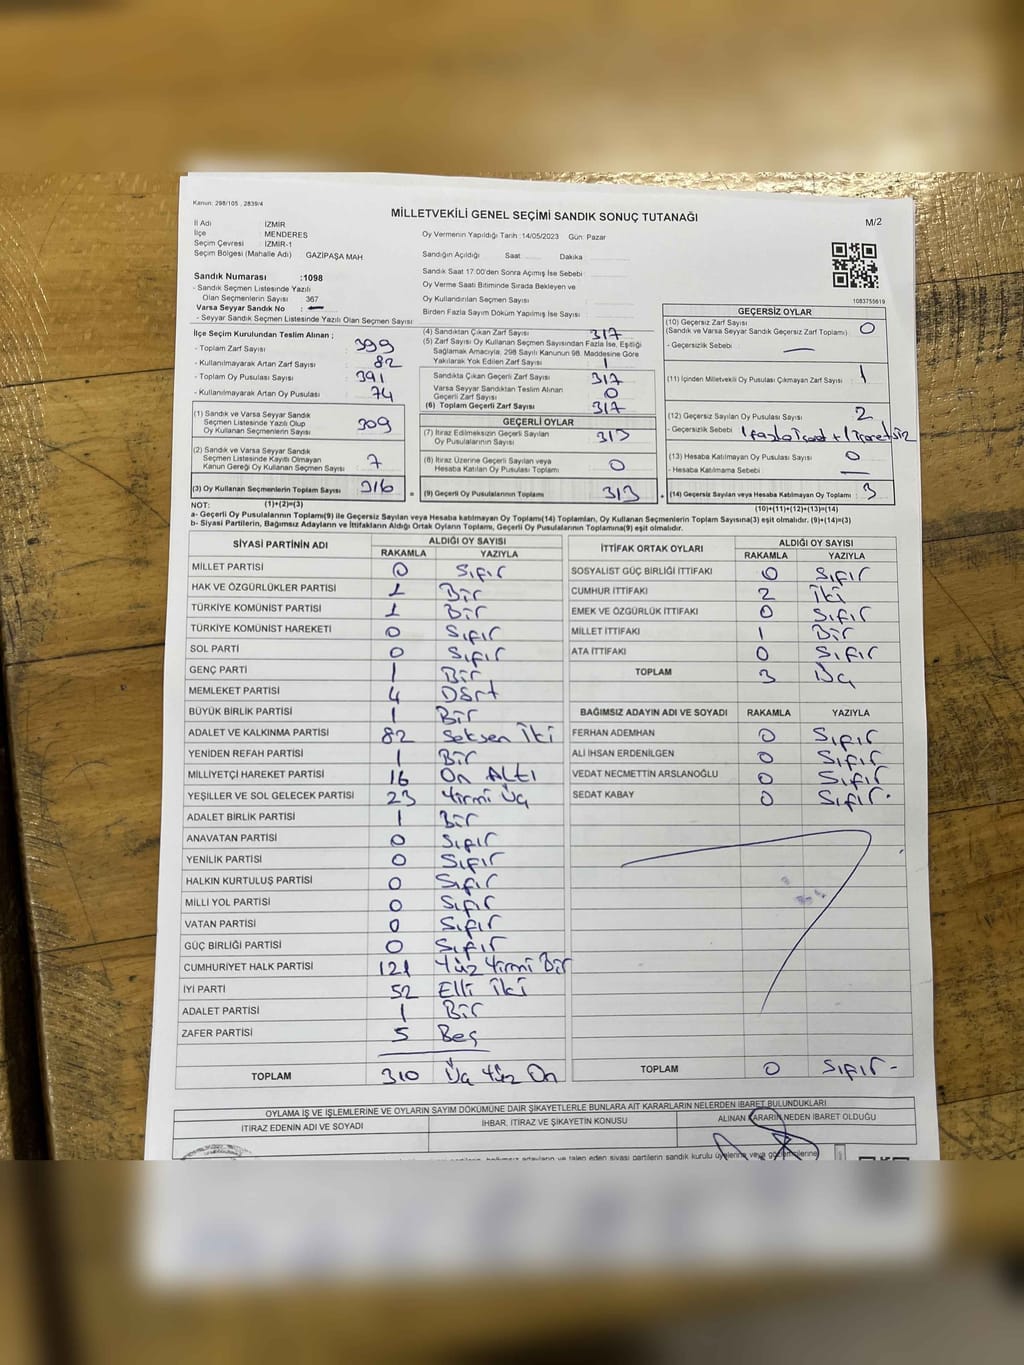 Kanun: 298/105 , 2839/4
MİLLETVEKİLİ GENEL SEÇİMİ SANDIK SONUÇ TUTANAĞI
M/2
İl Adı : İZMİR
İlçe : MENDERES
Seçim Çevresi : İZMİR-1
Seçim Bölgesi (Mahalle Adı) GAZİPAŞA MAH.
Oy Vermenin Yapıldığı Tarih :14/05/2023 Gün: Pazar
Sandığın Açıldığı Saat Dakika
Sandık Saat 17:00'den Sonra Açımış İse Sebebi
Oy Verme Saati Bitiminde Sırada Bekleyen ve
Oy Kullandırılan Seçmen Sayısı
Birden Fazla Sayım Döküm Yapılmış İse Sayısı
1083755619
Sandık Numarası :1098
- Sandık Seçmen Listesinde Yazılı
Olan Seçmenlerin Sayısı 367
Varsa Seyyar Sandık No : —
- Seyyar Sandık Seçmen Listesinde Yazılı Olan Seçmen Sayısı
İlçe Seçim Kurulundan Teslim Alınan ;
- Toplam Zarf Sayısı : 399
- Kullanılmayarak Artan Zarf Sayısı : 82
- Toplam Oy Pusulası Sayısı : 391
- Kullanılmayarak Artan Oy Pusulası Sayısı : 74
(1) Sandık ve Varsa Seyyar Sandık
Seçmen Listesinde Yazılı Olup
Oy Kullanan Seçmenlerin Sayısı : 309
(2) Sandık ve Varsa Seyyar Sandık
Seçmen Listesinde Kayıtlı Olmayan
Kanun Gereği Oy Kullanan Seçmen Sayısı : 7
(3) Oy Kullanan Seçmenlerin Toplam Sayısı : 316
(1)+(2)=(3)
(4) Sandıktan Çıkan Zarf Sayısı : 317
(5) Zarf Sayısı Oy Kullanan Seçmen Sayısından Fazla İse, Eşitliği
Sağlamak Amacıyla, 298 Sayılı Kanunun 98. Maddesine Göre
Yakılarak Yok Edilen Zarf Sayısı : 1
Sandıkta Çıkan Geçerli Zarf Sayısı : 317
Varsa Seyyar Sandıktan Teslim Alınan
Geçerli Zarf Sayısı : 0
(6) Toplam Geçerli Zarf Sayısı : 317
GEÇERLİ OYLAR
(7) İtiraz Edilmeksizin Geçerli Sayılan
Oy Pusulalarının Sayısı : 313
(8) İtiraz Üzerine Geçerli Sayılan veya
Hesaba Katılan Oy Pusulası Toplamı : 0
(9) Geçerli Oy Pusulalarının Toplamı : 313
GEÇERSİZ OYLAR
(10) Geçersiz Zarf Sayısı
(Sandık ve Varsa Seyyar Sandık Geçersiz Zarf Toplamı) : 0
- Geçersizlik Sebebi : —
(11) İçinden Milletvekili Oy Pusulası Çıkmayan Zarf Sayısı : 1
(12) Geçersiz Sayılan Oy Pusulası Sayısı : 2
- Geçersizlik Sebebi : 1 fazla işaret + 1 işaretsiz
(13) Hesaba Katılmayan Oy Pusulası Sayısı : 0
- Hesaba Katılmama Sebebi : —
(14) Geçersiz Sayılan veya Hesaba Katılmayan Oy Toplamı : 3
(10)+(11)+(12)+(13)=(14)
NOT:
a- Geçerli Oy Pusulalarının Toplamı(9) ile Geçersiz Sayılan veya Hesaba katılmayan Oy Toplamı(14) Toplamları, Oy Kullanan Seçmenlerin Toplam Sayısına(3) eşit olmalıdır. (9)+(14)=(3)
b- Siyasi Partilerin, Bağımsız Adayların ve İttifakların Aldığı Ortak Oyların Toplamı, Geçerli Oy Pusulalarının Toplamına(9) eşit olmalıdır.
SİYASİ PARTİNİN ADI ALDIĞI OY SAYISI
RAKAMLA YAZIYLA
MİLLET PARTİSİ 0 Sıfır
HAK VE ÖZGÜRLÜKLER PARTİSİ 1 Bir
TÜRKİYE KOMÜNİST PARTİSİ 1 Bir
TÜRKİYE KOMÜNİST HAREKETİ 0 Sıfır
SOL PARTİ 0 Sıfır
GENÇ PARTİ 1 Bir
MEMLEKET PARTİSİ 4 Dört
BÜYÜK BİRLİK PARTİSİ 1 Bir
ADALET VE KALKINMA PARTİSİ 82 Seksen İki
YENİDEN REFAH PARTİSİ 1 Bir
MİLLİYETÇİ HAREKET PARTİSİ 16 On Altı
YEŞİLLER VE SOL GELECEK PARTİSİ 23 Yirmi Üç
ADALET BİRLİK PARTİSİ 1 Bir
ANAVATAN PARTİSİ 0 Sıfır
YENİLİK PARTİSİ 0 Sıfır
HALKIN KURTULUŞ PARTİSİ 0 Sıfır
MİLLİ YOL PARTİSİ 0 Sıfır
VATAN PARTİSİ 0 Sıfır
GÜÇ BİRLİĞİ PARTİSİ 0 Sıfır
CUMHURİYET HALK PARTİSİ 121 Yüz Yirmi Bir
İYİ PARTİ 52 Elli İki
ADALET PARTİSİ 1 Bir
ZAFER PARTİSİ 5 Beş
TOPLAM 310 Üç Yüz On
İTTİFAK ORTAK OYLARI ALDIĞI OY SAYISI
RAKAMLA YAZIYLA
SOSYALİST GÜÇ BİRLİĞİ İTTİFAKI 0 Sıfır
CUMHUR İTTİFAKI 2 İki
EMEK VE ÖZGÜRLÜK İTTİFAKI 0 Sıfır
MİLLET İTTİFAKI 1 Bir
ATA İTTİFAKI 0 Sıfır
TOPLAM 3 Üç
BAĞIMSIZ ADAYIN ADI VE SOYADI RAKAMLA YAZIYLA
FERHAN ADEMHAN 0 Sıfır
ALİ İHSAN ERDENİLGEN 0 Sıfır
VEDAT NECMETTİN ARSLANOĞLU 0 Sıfır
SEDAT KABAY 0 Sıfır.
TOPLAM 0 Sıfır-
OYLAMA İŞ VE İŞLEMLERİNE VE OYLARIN SAYIM DÖKÜMÜNE DAİR ŞİKAYETLERLE BUNLARA AİT KARARLARIN NELERDEN İBARET BULUNDUKLARI
İTİRAZ EDENİN ADI VE SOYADI İHBAR, İTİRAZ VE ŞİKAYETİN KONUSU ALINAN KARARIN NEDEN İBARET OLDUĞU